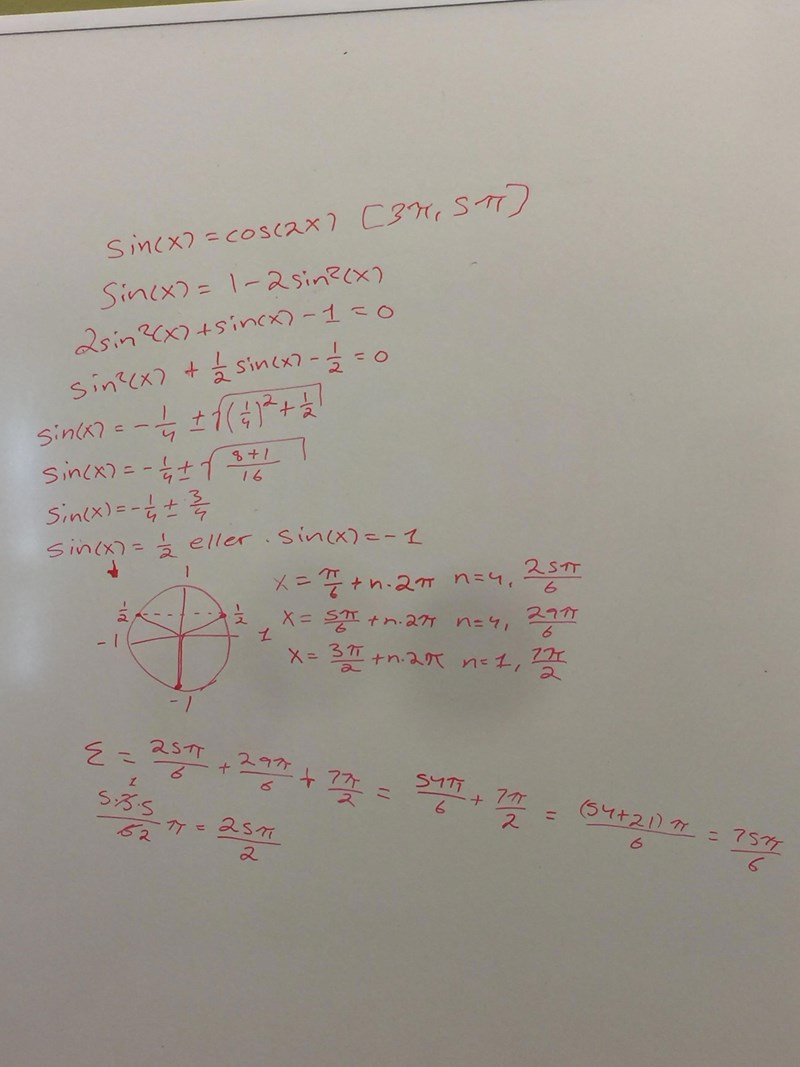 sin(x) = cos(2x) [3π, 5π]
sin(x) = 1 - 2sin²(x)
2sin²(x) + sin(x) - 1 = 0
sin²(x) + 1/2 sin(x) - 1/2 = 0
sin(x) = -1/4 ± √((1/4)² + 1/2)
sin(x) = -1/4 ± √((8+1)/16)
sin(x) = -1/4 ± 3/4
sin(x) = 1/2 eller. sin(x) = -1
1
1/2 1/2
-1 1
-1
x = π/6 + n·2π n=4, 25π/6
x = 5π/6 + n·2π n=4, 29π/6
x = 3π/2 + n·2π n=1, 7π/2
Σ = 25π/6 + 29π/6 + 7π/2 = 54π/6 + 7π/2 = (54+21)π/6 = 75π/6
1
5·3·5/62 π = 25π/2